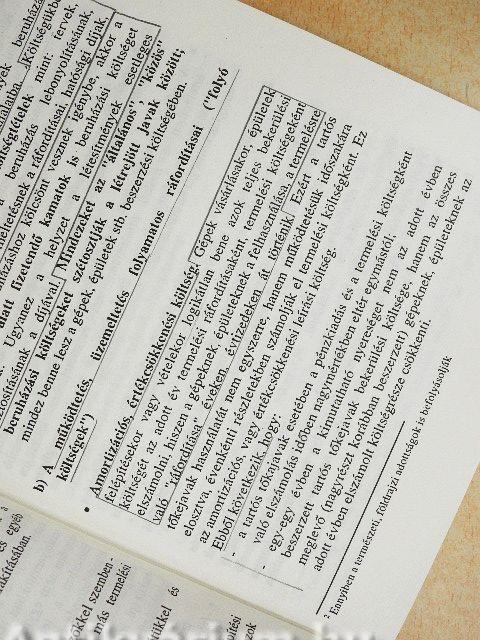 beruházási
költségtételek mint: tervek,
a beruházás lebonyolításának,
üzemeltetésnek a ráfordításai, hatósági díjak,
beruházáshoz kölcsönt vesznek igénybe, akkor a
alatt fizetendő kamatok is beruházási költséget
Ugyanez a helyzet a létesítmények esetleges
díjával. Mindezeket az "általános", "közös"
beruházási költségeket szétosztják a létrejött javak között;
mindez benne lesz a gépek, épületek stb. beszerzési költségében.
b) A működtetés, üzemeltetés folyamatos ráfordításai ("folyó
költségek")
• Amortizációs, értékcsökkenési költség. Gépek vásárlásakor, épületek
felépítésekor vagy vételekor logikátlan lenne azok teljes bekerülési
költségét az adott év termelési ráfordításaként, termelési költségeként
elszámolni, hiszen a gépeknek épületeknek a felhasználása, a termelésre
való "ráfordítás" éveken, évtizedeken át történik. Ezért a tartós
tőkejavak használatát nem egyszerre, hanem működtetésük időszakára
elosztva, évenkénti részletekben számolják el termelési költségként. Ez
az amortizációs, vagy értékcsökkenési leírási költség
Ebből következik, hogy:
- a tartós tőkejavak esetében a pénzkiadás és a termelési költségként
való elszámolás időben nagymértékben eltér egymástól.
- egy-egy évben a kimutatható nyereséget nem az adott évben
beszerzett tartós tőkejavak bekerülési költsége, hanem az összes
meglevő (nagyrészt korábban beszerzett) gépeknek, épületeknek az
adott évben elszámolt költségrésze csökkenti.
² Ennyiben a természeti, földrajzi adottságok is befolyásolják
és egyéb
szemben -
más termelési
és